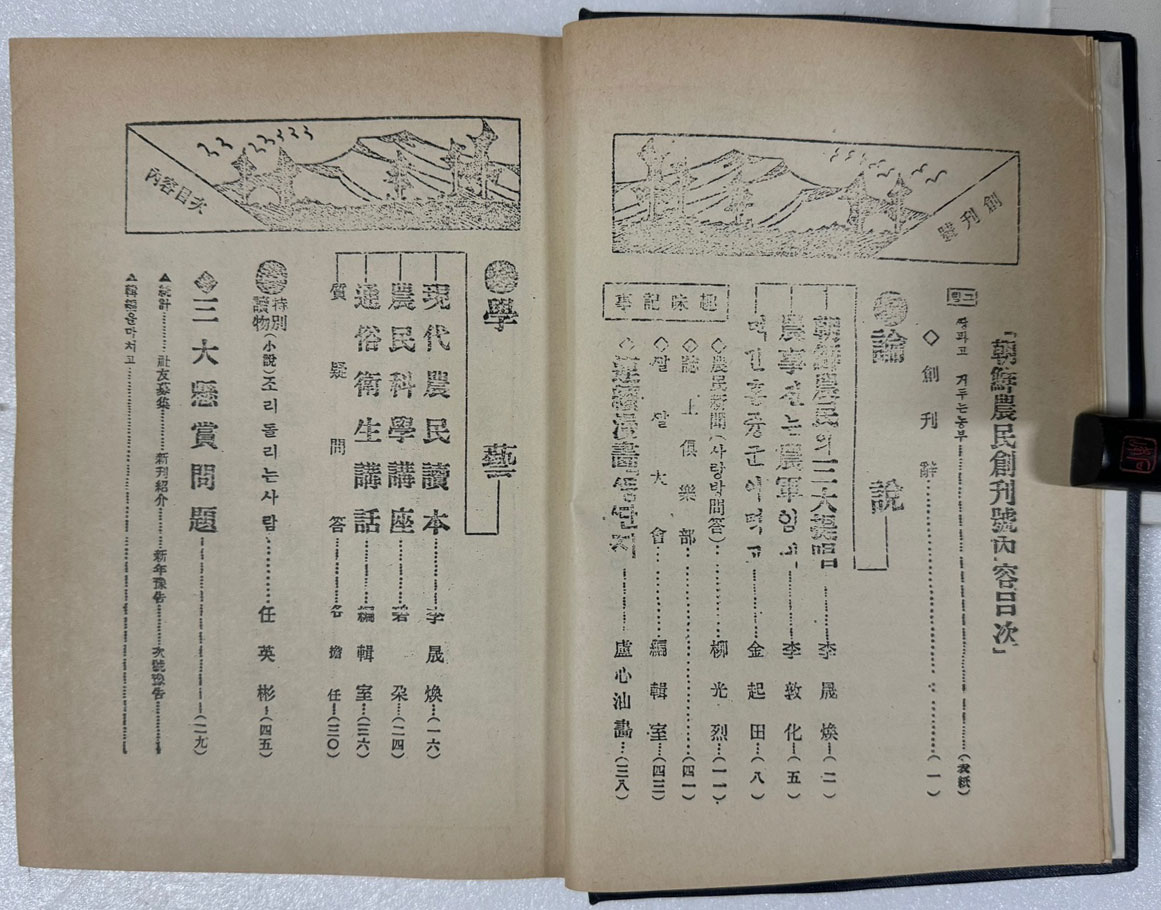 創刊號
「朝鮮農民創刊號內容目次」
땅파고 거두는농부……(表紙)
◇創刊辭……(一)
論說
朝鮮農民의三大提唱……李晟煥…(二)
農事짓는農軍임네……李敦化…(五)
金起田…(八)
趣味記事
◇農民新聞(사랑방問答)……柳光烈…(一一)
◇誌上俱樂部……(四一)
◇깔깔大會……編輯室…(四三)
◇連續漫畵……盧心汕畵…(三八)
內容目次
學藝
現代農民讀本……李晟煥…(一六)
農民科學講座……(二四)
通俗衛生講話……編輯室…(三六)
質疑問答……各擔任…(三〇)
特別讀物(小說)조리돌리는사람……任英彬…(四五)
三大懸賞問題……(二九)
▲統計……社友募集……新刊紹介……新年豫告……次號豫告……
▲編輯을마치고……